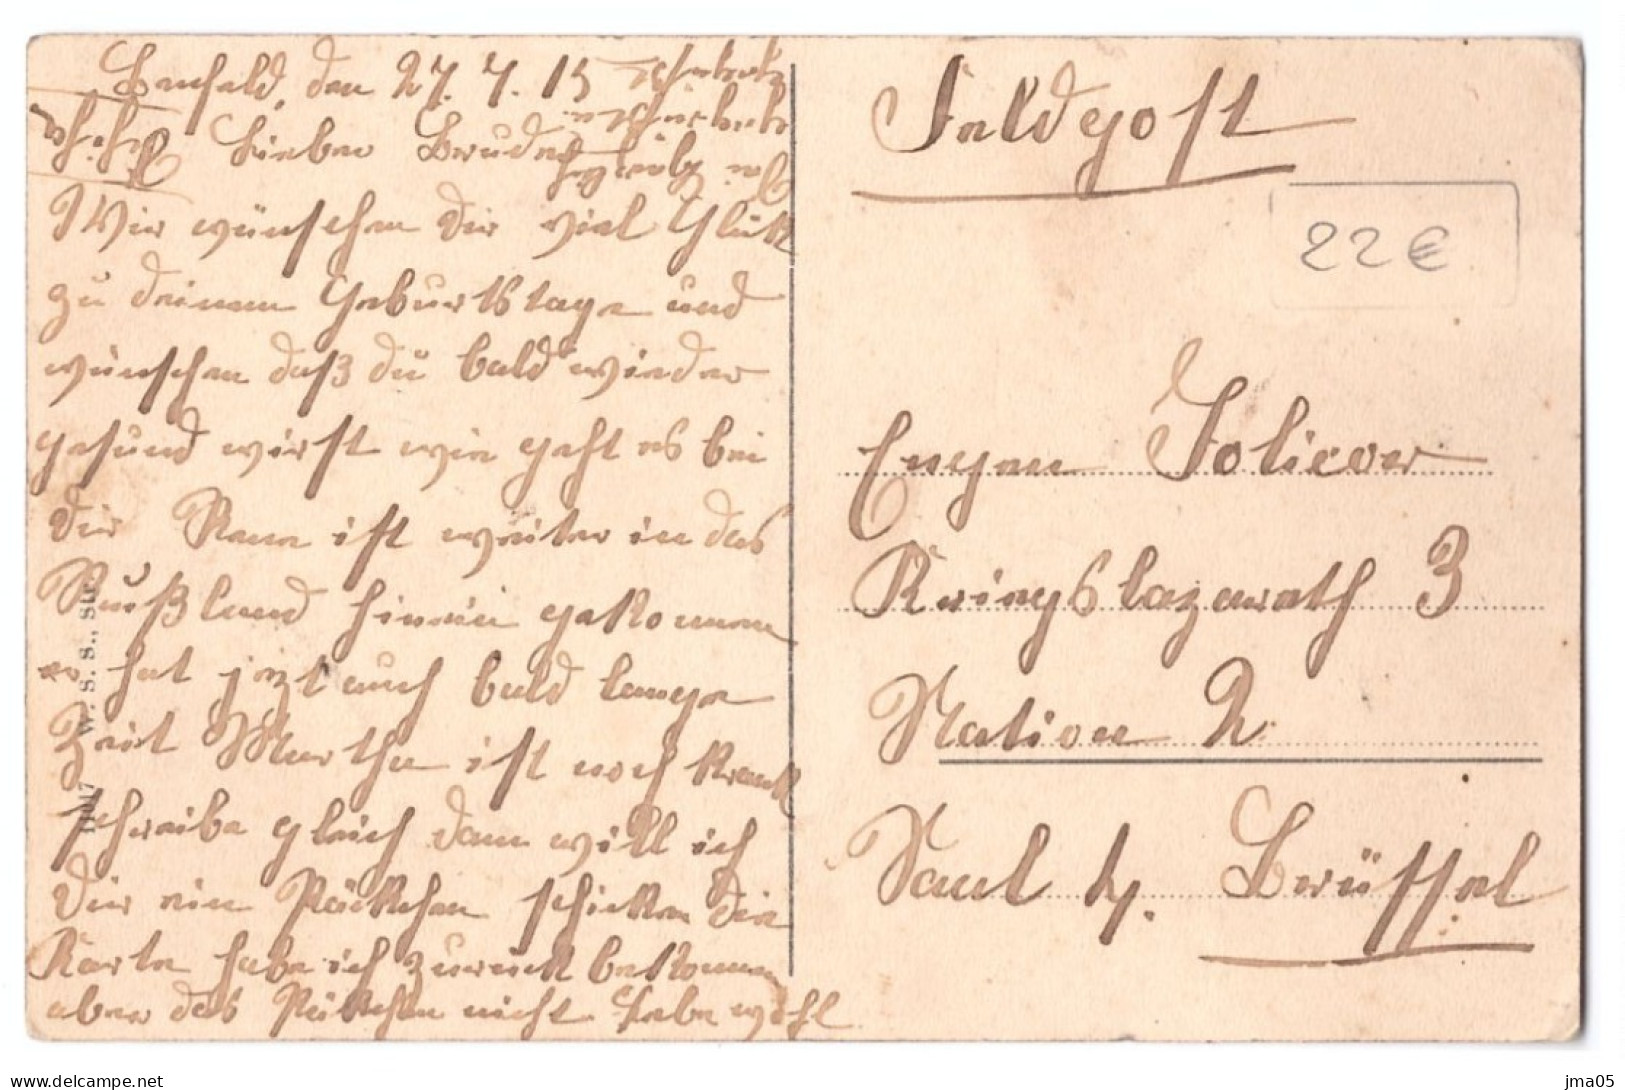 Benfeld, den 27. 7. 15
Lieber Bruder
Wir wünschen Dir viel Glük
zu deinem Geburtstage und
wünschen daß du bald wieder
gesund wirst wie geht es bei
Dir Rene ist weiter in das
Rußland hinein gekommen
er hat jezt auch bald lange
Zeit Martha ist noch krank
schreibe gleich dann will ich
Dir ein Päckchen schicken Die
Karte habe ich zurück bekommen
aber das Päkchen nicht Lebe wohl
W. S. S., Str.
Feldpost
22€
Eugen Jolicoer
Kriegslazarath 3
Station 2
Brüssel
jma05